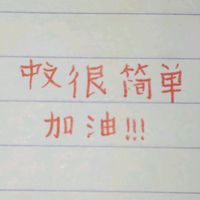 中文很简单
加油!!!